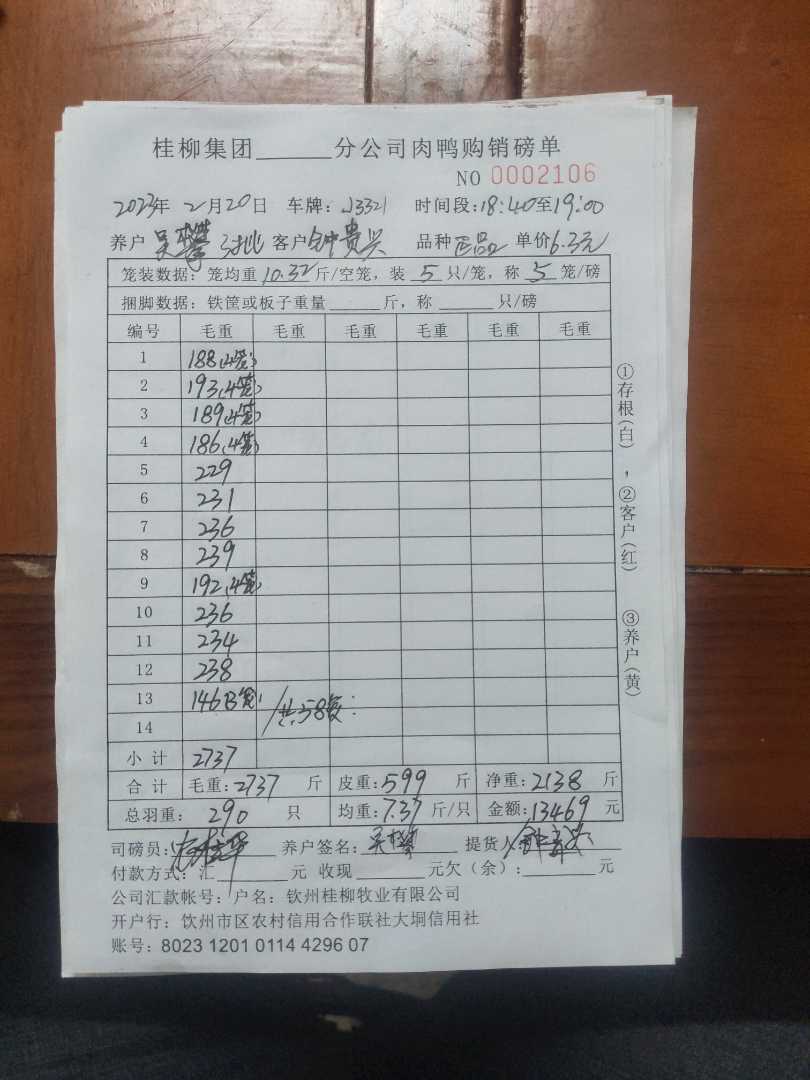 桂柳集团______分公司肉鸭购销磅单
NO 0002106
2023年 2月20日 车牌: J3321 时间段:18:40至19:00
养户 吴攀 客户 钟贵兴 品种 正品 单价6.3元
笼装数据: 笼均重 10.32 斤/空笼, 装 5 只/笼, 称 5 笼/磅
捆脚数据: 铁筐或板子重量______斤, 称______只/磅
编号 毛重 毛重 毛重 毛重 毛重 毛重
1 188(4笼)
2 193(4笼)
3 189(4笼)
4 186(4笼)
5 229
6 231
7 236
8 239
9 192(4笼)
10 236
11 234
12 238
13 146(3笼) 共58笼
14
小计 2737
合计 毛重:2737 斤 皮重:599 斤 净重:2138 斤
总羽重: 290 只 均重:7.37斤/只 金额:13469 元
司磅员: 养户签名: 吴攀 提货人: 钟贵兴
付款方式: 汇______元 收现______元欠(余):______元
公司汇款帐号: 户名: 钦州桂柳牧业有限公司
开户行: 钦州市区农村信用合作联社大垌信用社
账号: 8023 1201 0114 4296 07
①存根(白), ②客户(红) ③养户(黄)